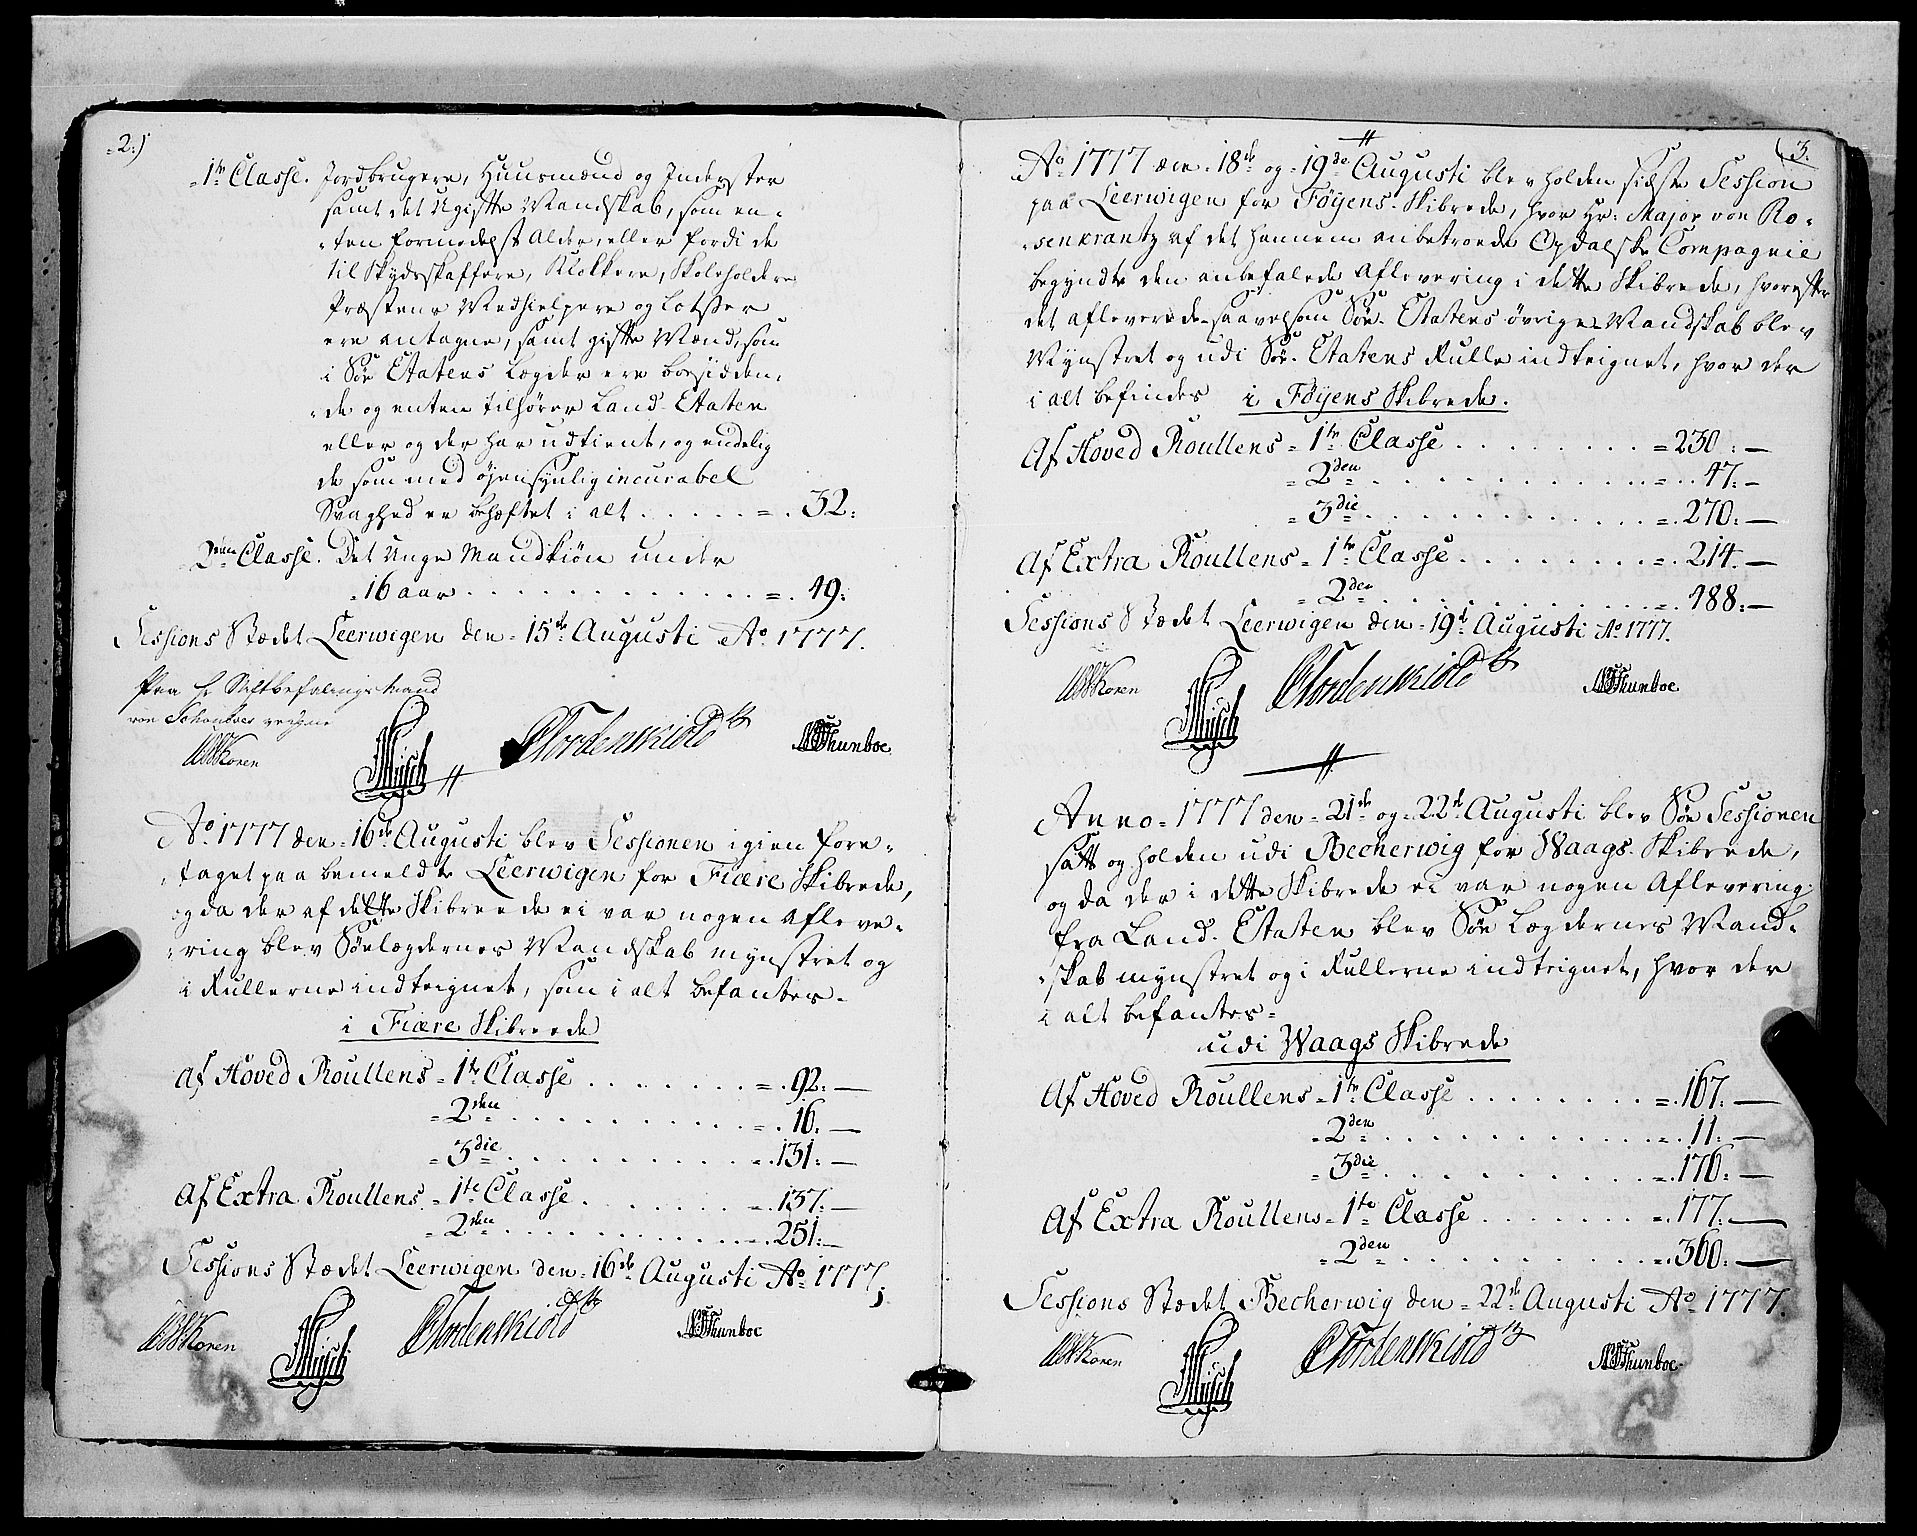 2.)
1te Classe. Jordbrugere, Huusmænd og Inderster
samt det Ugiftte Mandskab, som en-
ten formedelst Alder, eller fordi de
til Skydsskaffere, Klokkere, Skoleholdere
Præstens Medhielpere og Lotsser
ere antagne, samt giftte Mænd, som
i Søe Etatens Lægder ere boesidden-
de og enten tilhører Land-Etaten
eller og der har udtient, og endelig
de som med øyensynlig incurabel
Svaghed er behæftet i alt . . . . . = . 32:
2den Classe. Det Unge Mandkiøn under
16 aar . . . . . . . . . . . . . = . 49:
Sessions Stædet Leerwigen den 15de Augusti Ao 1777.
Paa Hr Stiftbefalings Mand
von Schouboes vegne
Koren
Mÿsch
Tordenskiold
Thunboe
Ao 1777 den 16de Augusti blev Sessionen igien fore-
taget paa bemeldte Leerwigen for Fiære Skibrede,
og da der af dette Skibreede ei var nogen Afleve-
ring blev Søelægdernes Mandskab mynstret og
i Rullerne indteignet, som i alt befantes.
i Fiære Skibreede
Af Hoved Roullens 1te Classe . . . . . . . = . 92: —
2den . . . . . . . . . . = . 16: —
3die . . . . . . . . . . = . 131: —
Af Extra Roullens 1te Classe . . . . . . . = . 137: —
2den . . . . . . . . . . = . 251: —
Sessions Stædet Leerwigen den 16de Augusti Ao 1777,
Koren
Mÿsch
Tordenskiold
Thunboe
(3.
Ao 1777 den 18de og 19de Augusti blev holden sidste Session
paa Leerwigen for Føÿens Skibrede, hvor Hr: Major von Ro-
senkrantz af det hannem anbetroede Opdalske Compagnie
begyndte den anbefalede Aflevering i dette Skibrede, hvorefter
det afleverede saavelsom Søe-Etatens øvrige Mandskab blev
Mynstret og udi Søe-Etatens Rulle indteignet, hvor der
i alt befindes i Føÿens Skibrede.
Af Hoved Roullens 1te Classe . . . . . . . . = 230: —
2den . . . . . . . . . . = . 47: —
3die . . . . . . . . . . = . 270: —
Af Extra Roullens 1te Classe . . . . . . . . = . 214. —
2den . . . . . . . . . . = . 488: —
Sessions Stædet Leerwigen den 19de Augusti Ao 1777.
Koren
Mÿsch
Tordenskiold
Thunboe
Anno 1777 den 21de og 22de Augusti blev Søe Sessionen
satt og holden udi Becherwig for Waags Skibrede,
og da der i dette Skibrede ei var nogen Aflevering
fra Land-Etaten blev Søe Lægdernes Mand-
skab mynstret og i Rullerne indteignet, hvor der
i alt befantes
udi Waags Skibrede
Af Hoved Roullens 1te Classe . . . . . . . = . 167: —
2den . . . . . . . . . . = . 11: —
3die . . . . . . . . . . = . 176: —
Af Extra Roullens 1te Classe . . . . . . . = . 177: —
2den . . . . . . . . . . = . 360: —
Sessions Stædet Becherwig den 22de Augusti Ao 1777.
Koren
Mÿsch
Tordenskiold
Thunboe